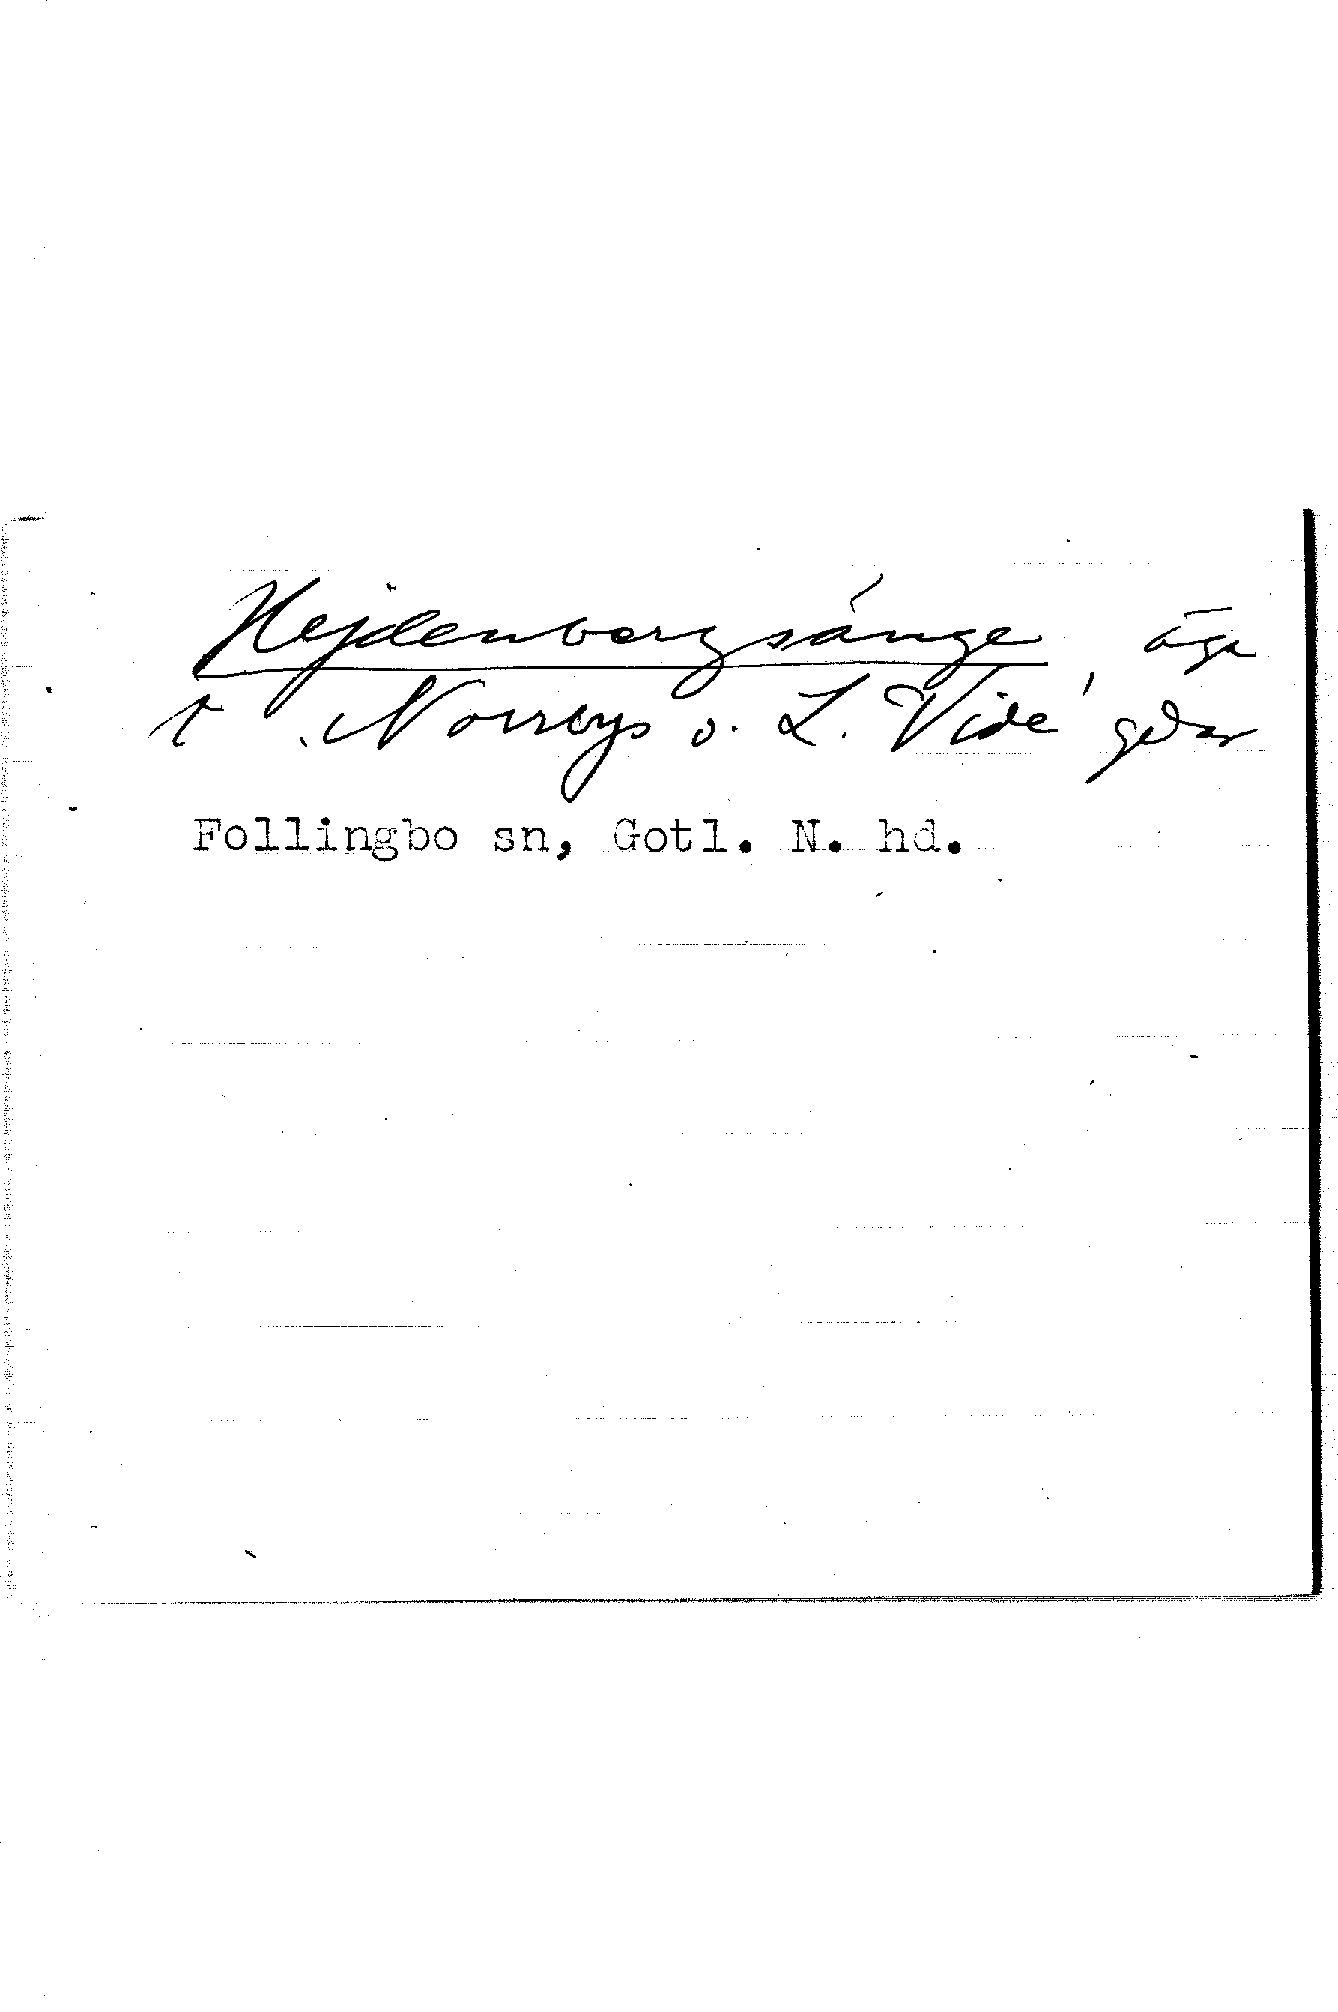 Hejdenbergsänge, äga
t Norrbys o. L. Vide gdar
Follingbo sn, Gotl. N. hd.